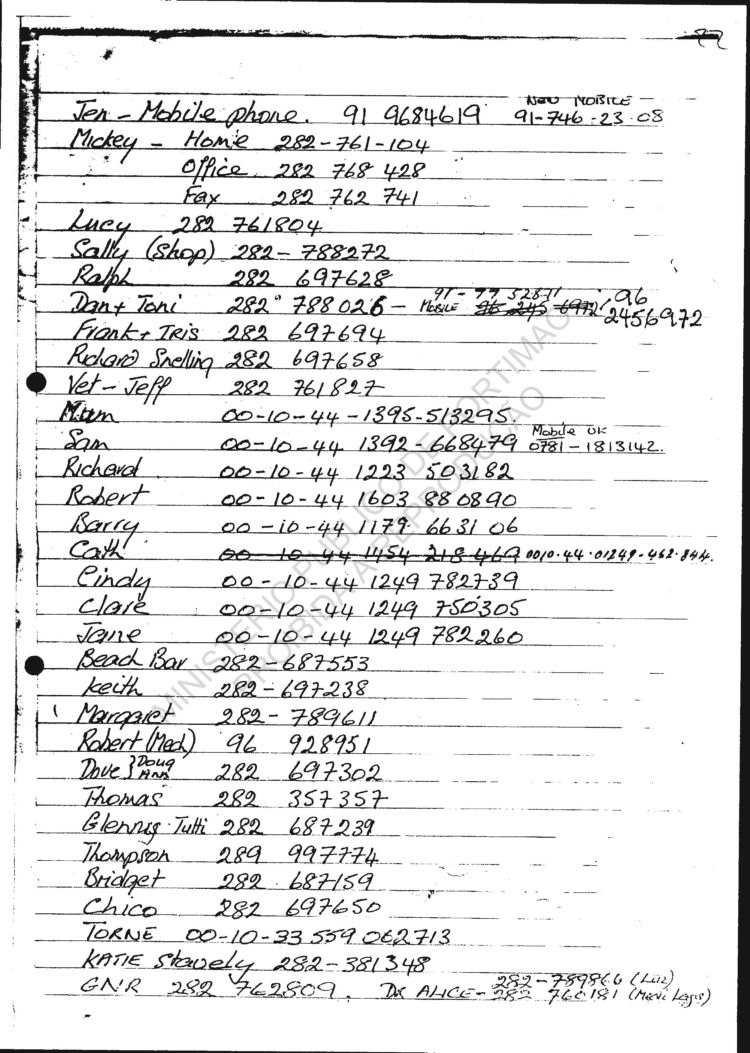 NEW MOBILE
Jen - Mobile phone. 91 9684619 91-746-23.08
Mickey - Home 282-761-104
Office 282 768 428
Fax 282 762 741
Lucy 282 761804
Sally (Shop) 282-788272
Ralph 282 697628
91-77 52871
Dan + Toni 282 788026 - MOBILE 96 245 6972 96
2456972
Frank + Iris 282 697694
Richard Snelling 282 697658
Vet - Jeff 282 761827
Mum 00-10-44-1395-513295.
Mobile UK
Sam 00-10-44 1392-668479 0781-1813142.
Richard 00-10-44 1223 503182
Robert 00-10-44 1603 880890
Barry 00-10-44 1179 663106
Cath 00-10-44 1454 218 469 0010.44.01249-462.844.
Cindy 00-10-44 1249 782739
Clare 00-10-44 1249 750305
Jane 00-10-44 1249 782260
Beach Bar 282-687553
Keith 282-697238
Margaret 282-789611
Robert (Mech) 96 928951
Dave } Doug Ann 282 697302
Thomas 282 357357
Glennis Tutti 282 687239
Thompson 289 997774
Bridget 282 687159
Chico 282 697650
TORNE 00-10-33 559 062713
KATIE Stavely 282-381348
282-789866 (Luz)
GNR 282 762809. DR ALICE - 282 760181 (Medi Lagos)
MINISTÉRIO PÚBLICO DE PORTIMÃO
PROIBIDA A REPRODUÇÃO